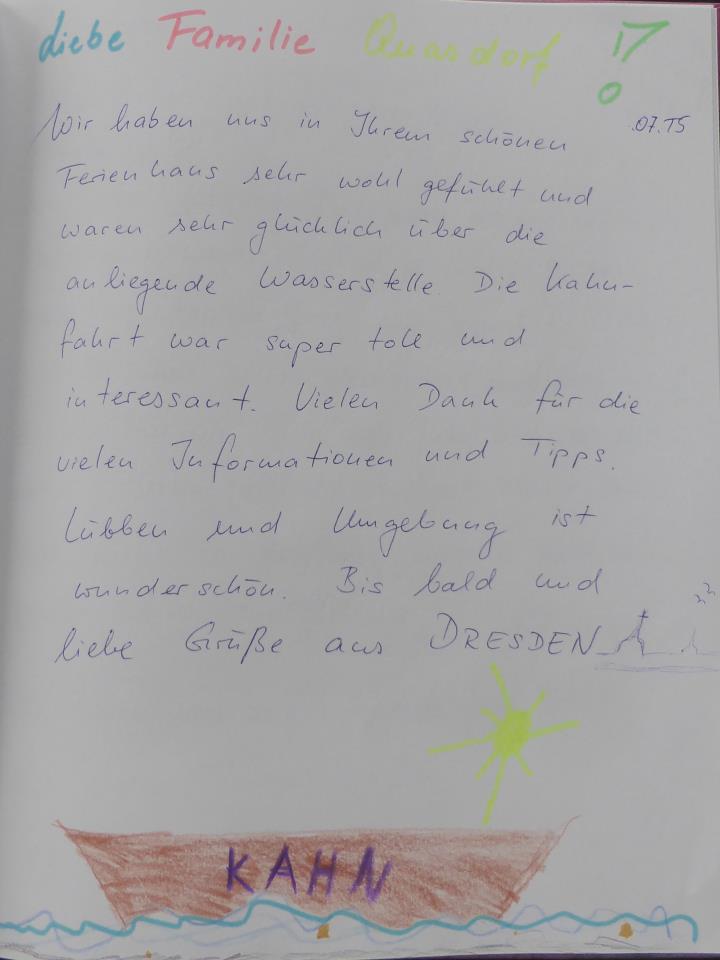 liebe Familie Quasdorf !
.07.15
Wir haben uns in Ihrem schönen
Ferienhaus sehr wohl gefühlt und
waren sehr glücklich über die
anliegende Wasserstelle. Die Kahn-
fahrt war super toll und
interessant. Vielen Dank für die
vielen Informationen und Tipps.
Lübben und Umgebung ist
wunderschön. Bis bald und
liebe Grüße aus DRESDEN
KAHN